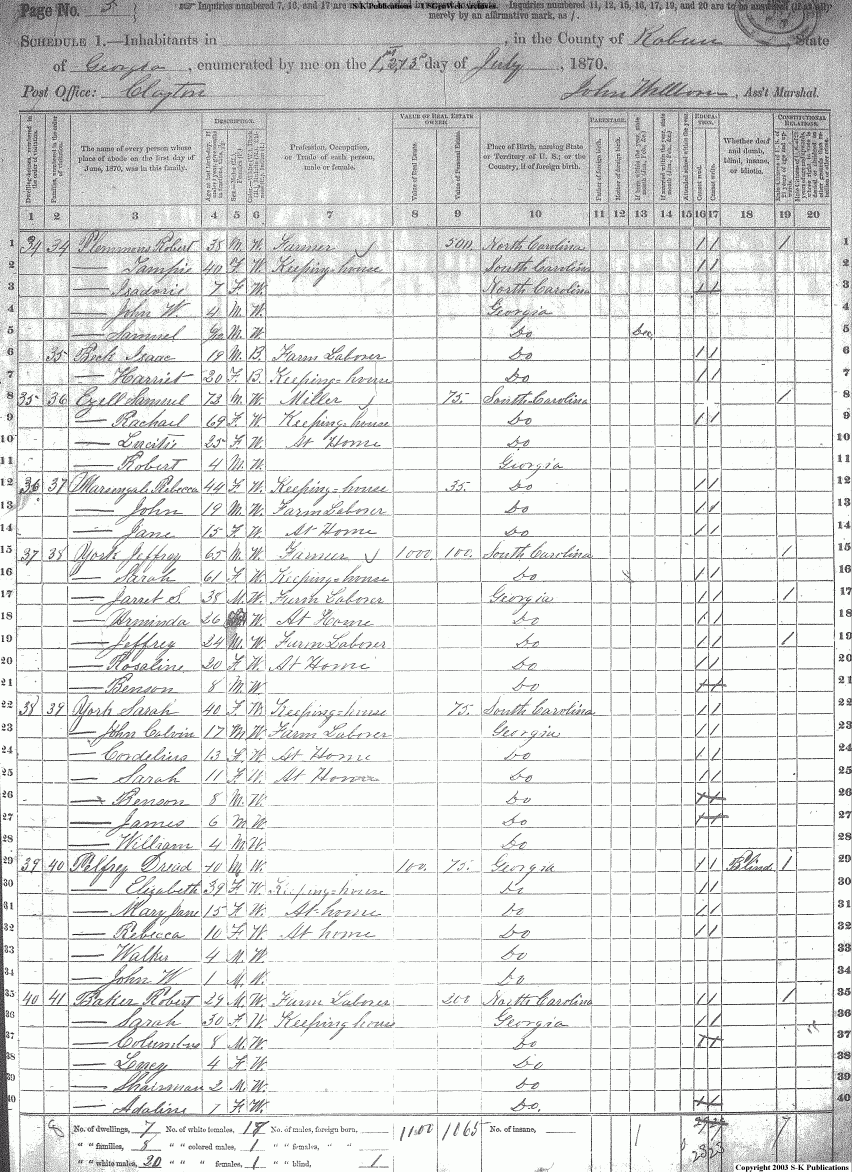 Page No. 5
Inquiries numbered 7, 16, and 17 are S-K Publications - USGenWeb Archives Inquiries numbered 11, 12, 15, 16, 17, 19, and 20 are to be answered (if at all)
merely by an affirmative mark, as /.
SCHEDULE 1.—Inhabitants in , in the County of Rabun , State
of Georgia , enumerated by me on the 1st, 2, 13 day of July , 1870.
Post Office: Clayton John Wellborn , Ass't Marshal.
DESCRIPTION. VALUE OF REAL ESTATE OWNED. PARENTAGE. EDUCATION. CONSTITUTIONAL RELATIONS.
The name of every person whose place of abode on the first day of June, 1870, was in this family. Profession, Occupation, or Trade of each person, male or female. Value of Real Estate. Value of Personal Estate. Place of Birth, naming State or Territory of U. S.; or the Country, if of foreign birth. Father of foreign birth. Mother of foreign birth. Attended school within the year. Cannot read. Cannot write. Whether deaf and dumb, blind, insane, or idiotic.
1 2 3 4 5 6 7 8 9 10 11 12 13 14 15 16 17 18 19 20
1 34 34 Plemmons Robert 38 M. W. Farmer 500 North Carolina / / / 1
2 — Tampie 40 F. W. Keeping-house South Carolina / / 2
3 — Isadoris 7 F. W. North Carolina 3
4 — John W. 4 M. W. Georgia 4
5 — Samuel M. W. Do Dec 5
6 35 Beck Isaac 19 M. B. Farm Laborer Do / / 6
7 — Harriet 20 F. B. Keeping-house Do / / 7
8 35 36 Ezell Samuel 73 M. W. Miller 75. South Carolina / 8
9 — Rachael 69 F. W. Keeping-house Do / / 9
10 — 25 F. W. At Home Do 10
11 — Robert 4 M. W. Georgia 11
12 36 37 Massengale Rebecca 44 F. W. Keeping-house 35. Do / / 12
13 — John 19 M. W. Farm Laborer Do / / 13
14 — Jane 15 F. W. At Home Do / / 14
15 37 38 York Jeffrey 65 M. W. Farmer 1000 100. South Carolina / 15
16 — Sarah 61 F. W. Keeping-house Do / / 16
17 — Jarret S. 38 M. W. Farm Laborer Georgia / / / 17
18 — Arminda 26 W. At Home Do / / 18
19 — Jeffrey 24 M. W. Farm Laborer Do / / / 19
20 — Rosaline 20 F. W. At Home Do / / 20
21 — Benson 8 M. W. Do 21
22 38 39 York Sarah 40 F. W. Keeping-house 75. South Carolina / / 22
23 — John Calvin 17 M W. Farm Laborer Georgia / / 23
24 — Cordelius 13 F. W. At Home Do / / 24
25 — Sarah 11 F. W. At Home Do / / 25
26 — Benson 8 M. W. Do 26
27 — James 6 M W. Do 27
28 — William 4 M. W. Do 28
29 39 40 Pelfrey Dread 40 M. W. 100. 75. Georgia / / Blind / 29
30 — Elizabeth 39 F. W. Keeping-house Do / / 30
31 — Mary Jane 15 F. W. At-home Do / / 31
32 — Rebecca 10 F. W. At home Do / / 32
33 — Walker 4 M. W. Do 33
34 — John W. 1 M. W. Do 34
35 40 41 Baker Robert 29 M. W. Farm Laborer 200 North Carolina / / / 35
36 — Sarah 30 F. W. Keeping house Georgia / / 36
37 — Columbus 8 M. W. Do 37
38 — 4 F. W. Do 38
39 — Shairman 2 M. W. Do 39
40 — Adaline 1 F. W. Do. 40
8 No. of dwellings, 7 No. of white females, 18 No. of males, foreign born, 1100 1065 No. of insane, 1 7
" " families, 8 " " colored males, 1 " " females, " " 23 23
" " white males, 20 " " " females, 1 " " blind, 1
Copyright 2003 S-K Publications